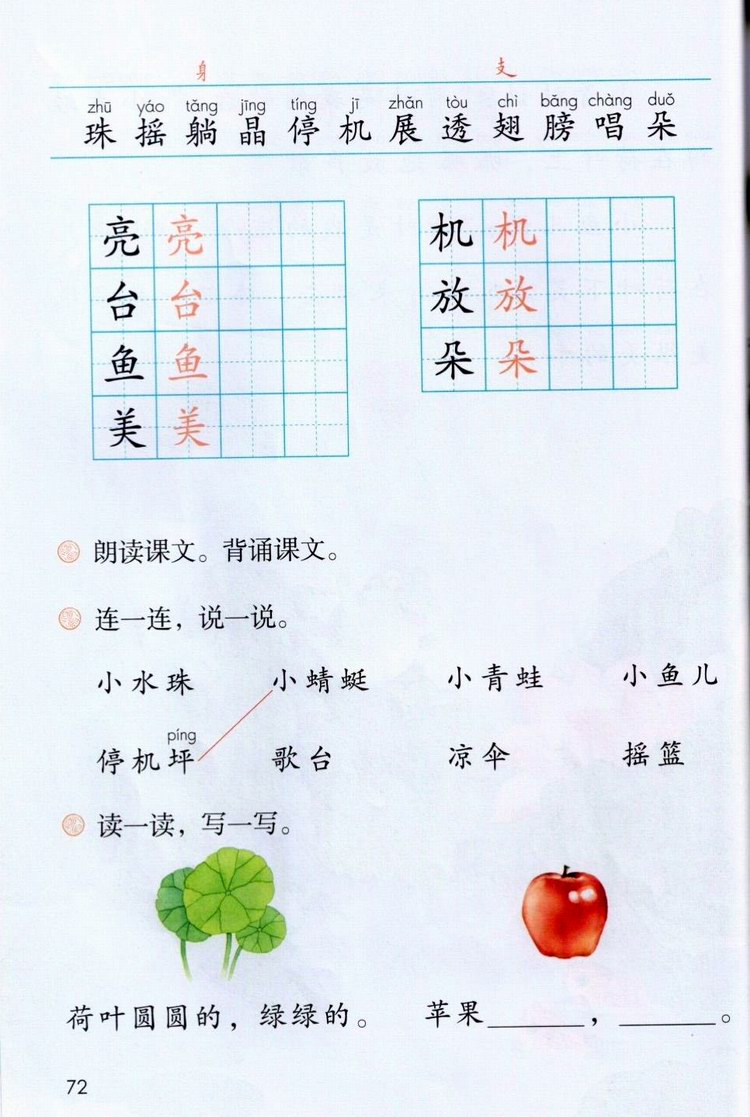 身 支
zhū yáo tǎng jīng tíng jī zhǎn tòu chì bǎng chàng duǒ
珠 摇 躺 晶 停 机 展 透 翅 膀 唱 朵
亮 亮 机 机
台 台 放 放
鱼 鱼 朵 朵
美 美
朗读课文。背诵课文。
连一连，说一说。
小水珠 小蜻蜓 小青蛙 小鱼儿
píng
停机坪 歌台 凉伞 摇篮
读一读，写一写。
荷叶圆圆的，绿绿的。 苹果______，______。
72